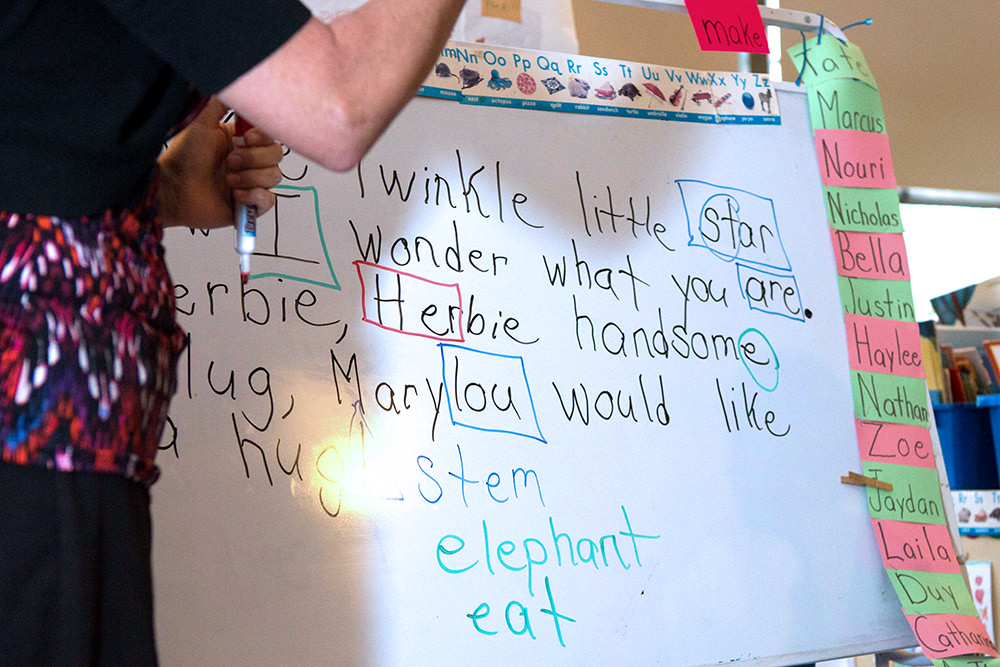 make
Nn Oo Pp Qq Rr Ss Tt Uu Vv Ww Xx Yy Zz
mouse nest octopus pizza quilt rabbit sandwich turtle umbrella violin yo-yo zebra
Twinkle little star
I wonder what you are.
erbie, Herbie handsome
lug, Marylou would like
a hug
stem
elephant
eat
Tate
Marcus
Nouri
Nicholas
Bella
Justin
Haylee
Nathan
Zoe
Jaydan
Laila
Duy
Catharin
Rr Ss